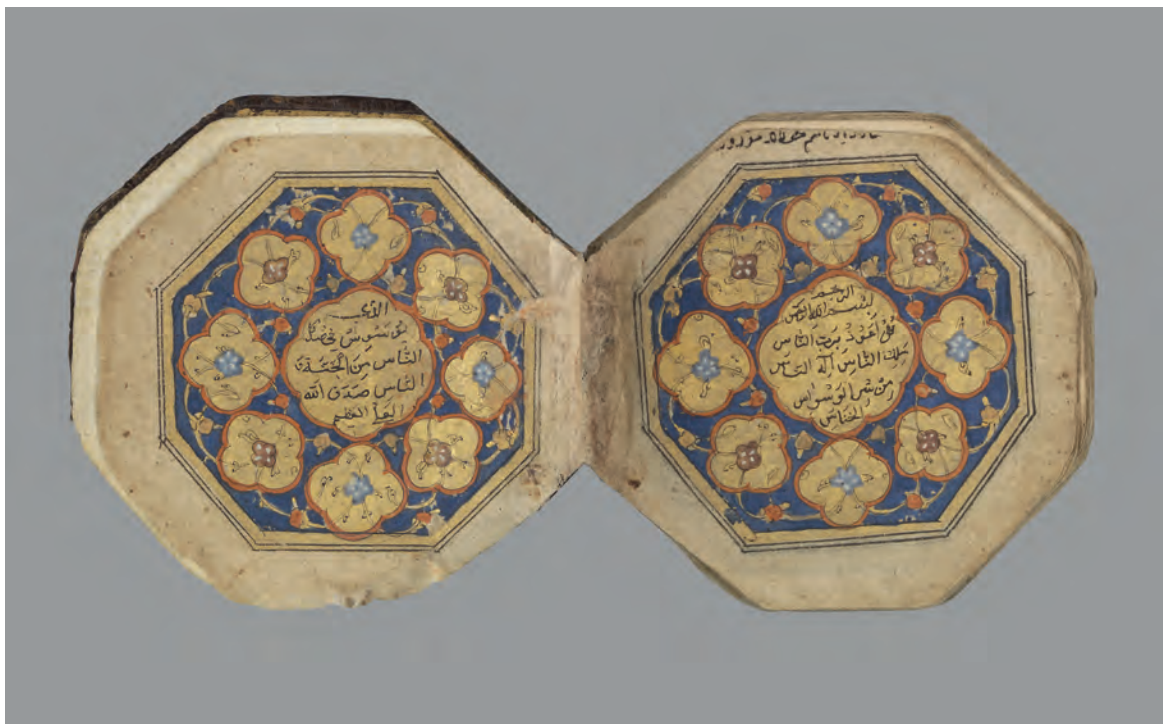 الرحيم
بسم الله الرحمن
قل اعوذ برب الناس
ملك الناس اله الناس
من شر الوسواس
الخناس
الذى
يوسوس فى صدور
الناس من الجنة و
الناس صدق الله
العلى العظيم